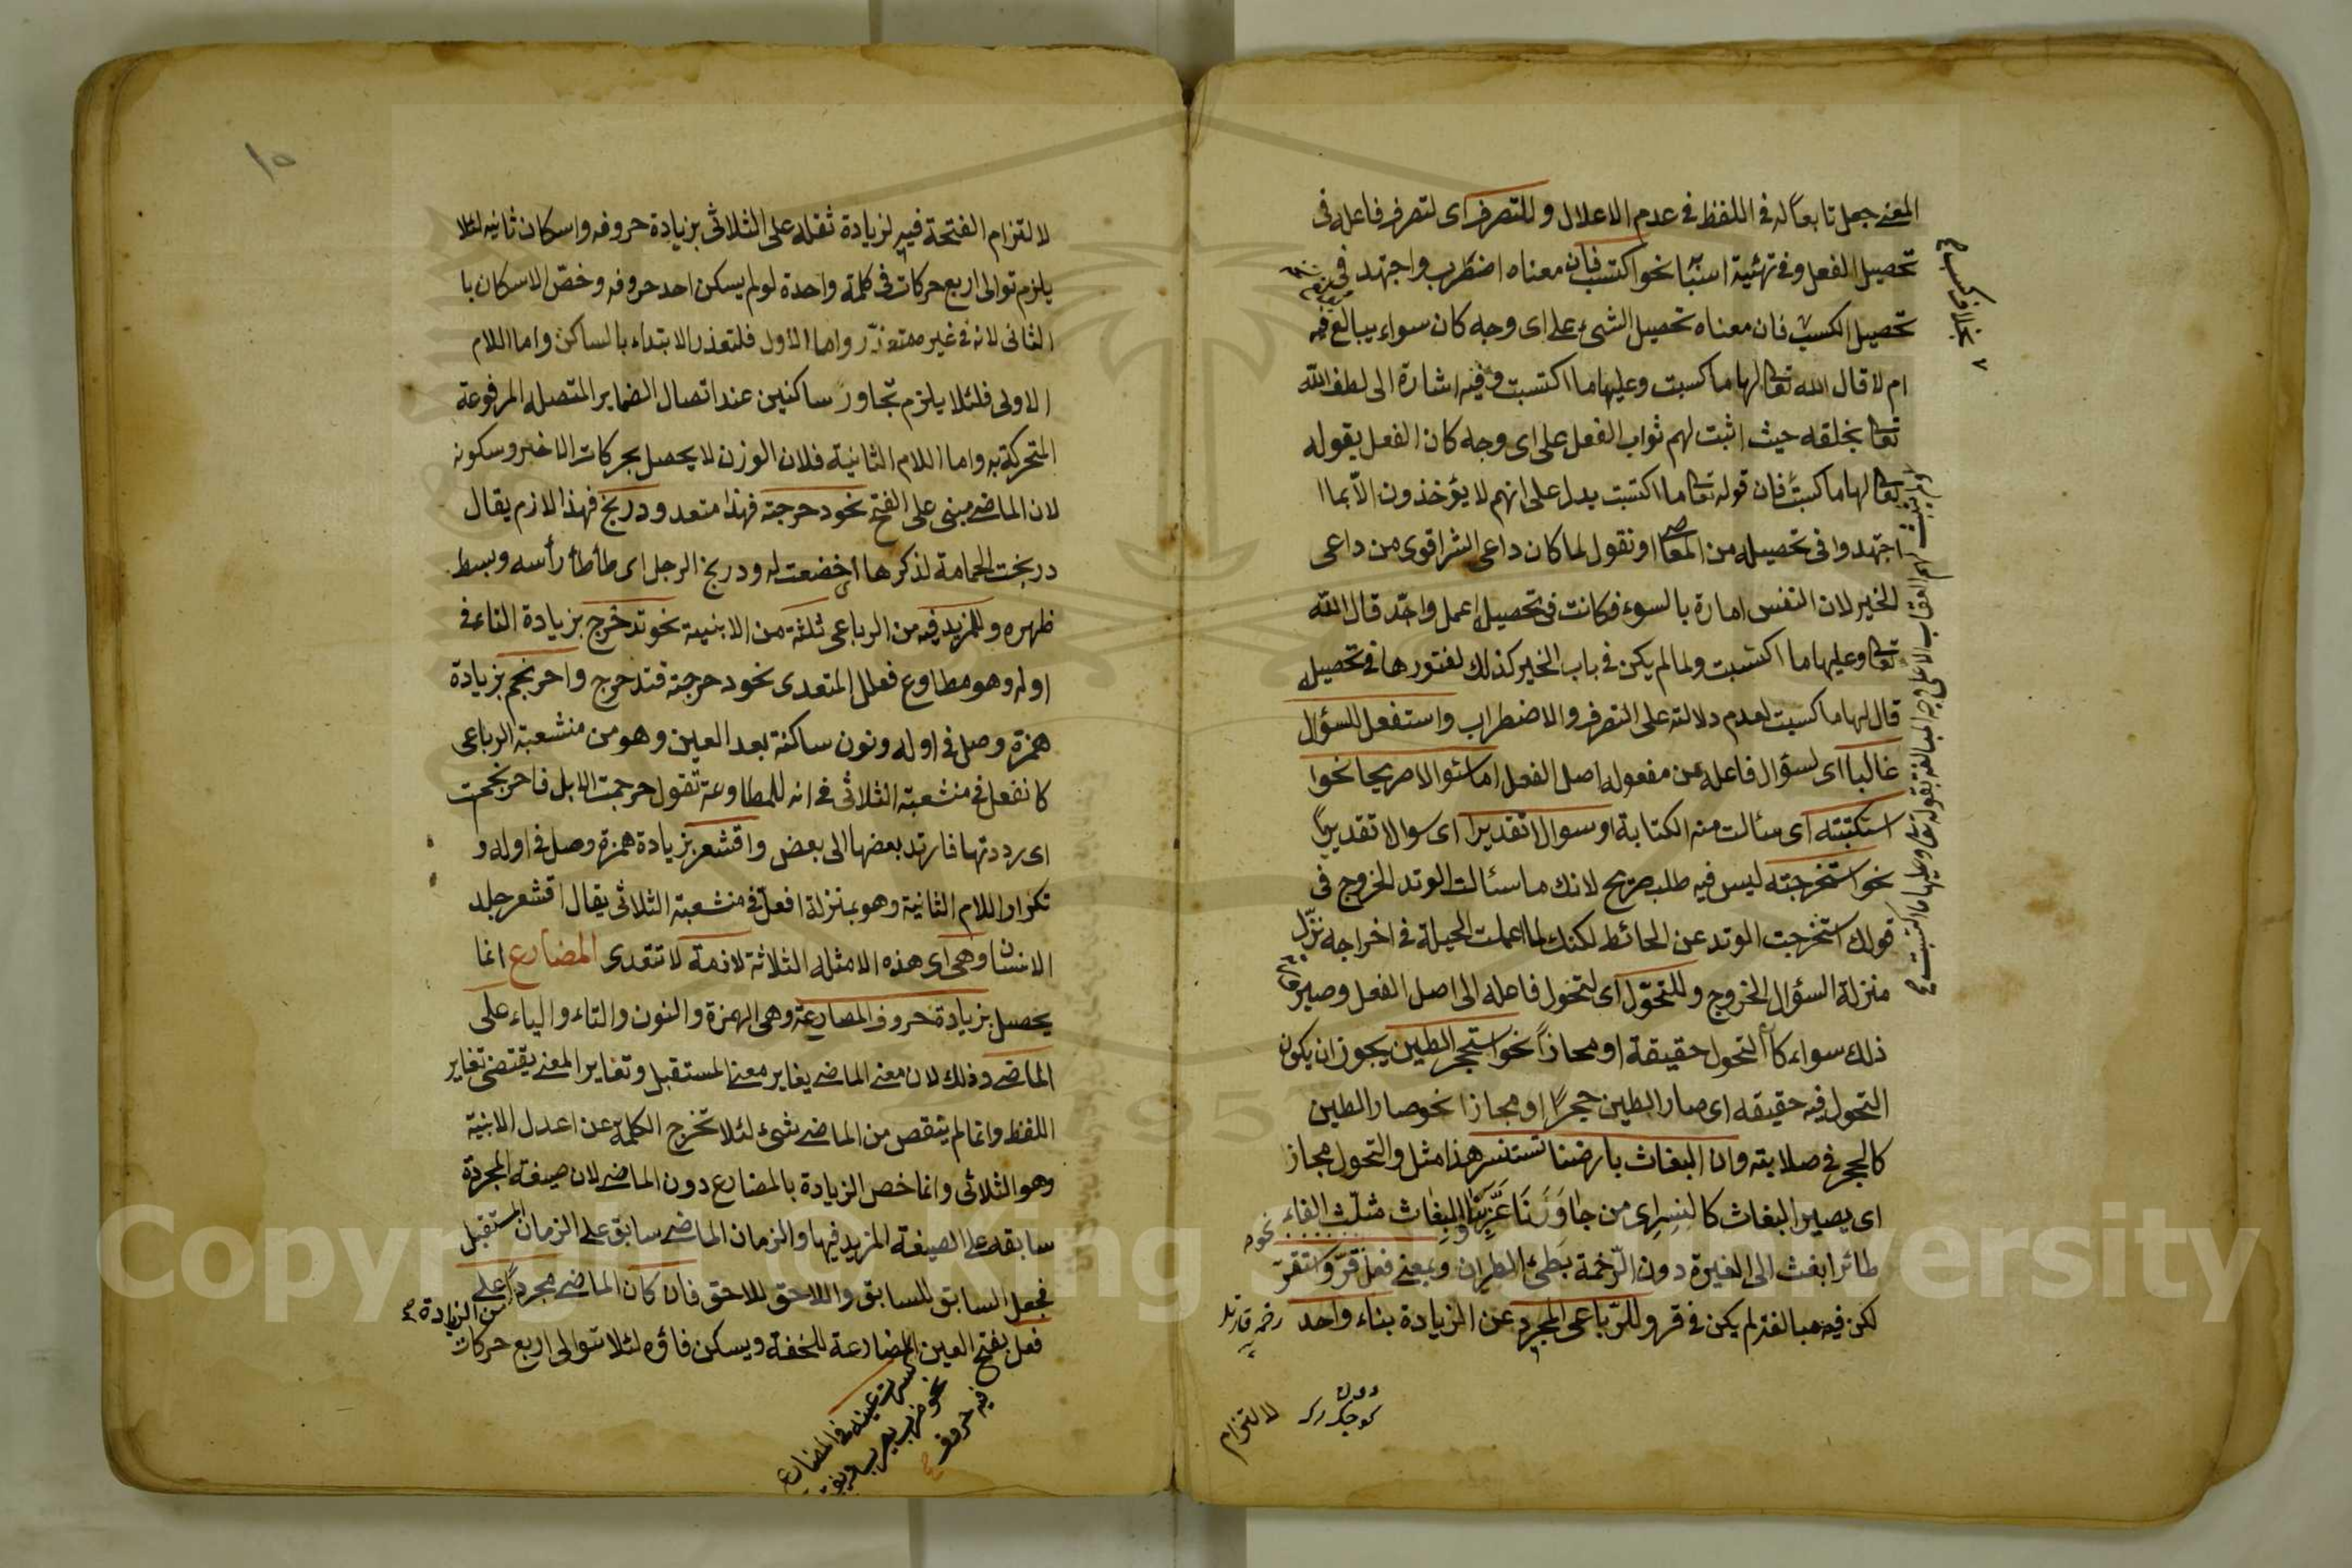 المعنى جعل تابعاً له في اللفظ في عدم الاعلال وللتصرف اى لتصرف فاعله فى
تحصيل الفعل وفي تهئية اسبابه نحو اكتسب فان معناه اضطرب واجتهد فى
تحصيل الكسب فان معناه تحصيل الشئ على اى وجه كان سواء يبالغ فيه
ام لا قال الله تعالى لها ما كسبت وعليها ما اكتسبت وفيه اشارة الى لطف الله
تعالى بخلقه حيث اثبت لهم ثواب الفعل على اى وجه كان الفعل بقوله
تعالى لها ما كسبت فان قوله تعالى ما اكتسبت يدل على انهم لا يؤخذون الّا بما ا
اجتهدوا فى تحصيله من المعاصى او نقول لما كان داعى الشر اقوى من داعى
الخير لان النفس امارة بالسوء فكانت فى تحصيل اعمل واجد قال الله
تعالى وعليها ما اكتسبت ولما لم يكن في باب الخير كذلك لفتورها في تحصيله
قال لها ما كسبت لعدم دلالته على التصرف والاضطراب واستفعل للسؤال
غالبا اى لسؤال فاعله عن مفعوله اصل الفعل اما سئوالا صريحا نحوا
استكتبته اى سئالت منه الكتابة او سوالا تقديرا اى سوالا تقديرياً
نحو استخرجته ليس فيه طلب صريح لانك ما سئالت الوتد الخروج فى
قولك استخرجت الوتد عن الحائط لكنك لما اعملت الحيلة في اخراجه نزّل
منزلة السؤال الخروج وللتحوّل اى لتحول فاعله الى اصل الفعل وصير
ذلك سواء كان التحول حقيقة او مجازاً نحو استحجر الطين يجوز ان يكون
التحول فيه حقيقه اى صار الطين حجراً او مجازا نحو صار الطين
كالحجر في صلابته وان البغاث بارضنا تستنسر هذا مثل والتحول مجاز
اى يصير البغاث كالنسر اى من جاوَرَنَا عَزَّ بنا والبغاث مثلّث الفاء
طائر ابغث الى الغبرة دون الرّخمة بطئ الطيران وبمعنى فعل نحو قرّ واستقرّ
لكن فيه مبالغة لم يكن في قر وللرّباعى المجرد عن الزيادة بناء واحد
لالتزام
١٥
لالتزام الفتحة فيه لزيادة ثقله على الثلاثى بزيادة حروفه واسكان ثانيه لئلا
يلزم توالى اربع حركات فى كلمة واحدة لو لم يسكن احد حروفه وخصّ الاسكان با
الثانى لانه في غيره متعذّر واما الاول فلتعذر الابتداء بالساكن واما اللام
الاولى فلئلا يلزم تجاور ساكنين عند اتصال الضماير المتصله المرفوعة
المتحركة به واما اللام الثانية فلان الوزن لا يحصل بحركات الاخير وسكونه
لان الماضى مبنى على الفتح نحو دحرجته فهذا متعد ودربخ فهذا لازم يقال
دربخت الحمامة لذكرها اى خضعت له ودربخ الرجل اى طأطأ رأسه وبسط
ظهره وللمزيد فيه من الرباعى ثلثة من الابنية نحو تدحرج بزيادة التاء في
اوله وهو مطاوع فعلل المتعدى نحو دحرجته فتدحرج واحرنجم بزيادة
همزة وصل في اوله ونون ساكنة بعد العين وهو من منشعبة الرباعى
كانفعل في منشعبة الثلاثى في انه للمطاوعة تقول حرجمت الابل فاحرنجمت
اى رددتها فارتد بعضها الى بعض واقشعر بزيادة همزة وصل في اوله و
تكرار اللام الثانية وهو بمنزلة افعلّ في منشعبة الثلاثى يقال اقشعر جلد
الانسان وهى اى هذه الامثله الثلاثة لازمة لا تتعدى المضارع انما
يحصل بزيادة حروف المضارعة وهى الهمزة والنون والتاء والياء على
الماضى وذلك لان معنى الماضى يغاير معنى المستقبل وتغاير المعنى يقتضى تغاير
اللفظ وانما لم ينقص من الماضى شئ لئلا تخرج الكلمة عن اعدل الابنية
وهو الثلاثى وانما خص الزيادة بالمضارع دون الماضى لان صيغة المجردة
سابقة على الصيغة المزيد فيها والزمان الماضى سابق على الزمان المستقبل
فجعل السابق للسابق واللاحق للاحق فان كان الماضى مجرداً على
من الزيادة
فعل بفتح العين المضارعة للخفة ويسكن فاؤه لئلا يتوالى اربع حركات
كسرت عينه في المضارع
نحو ضرب يضرب
فيه حروف
Copyright © King Saud University